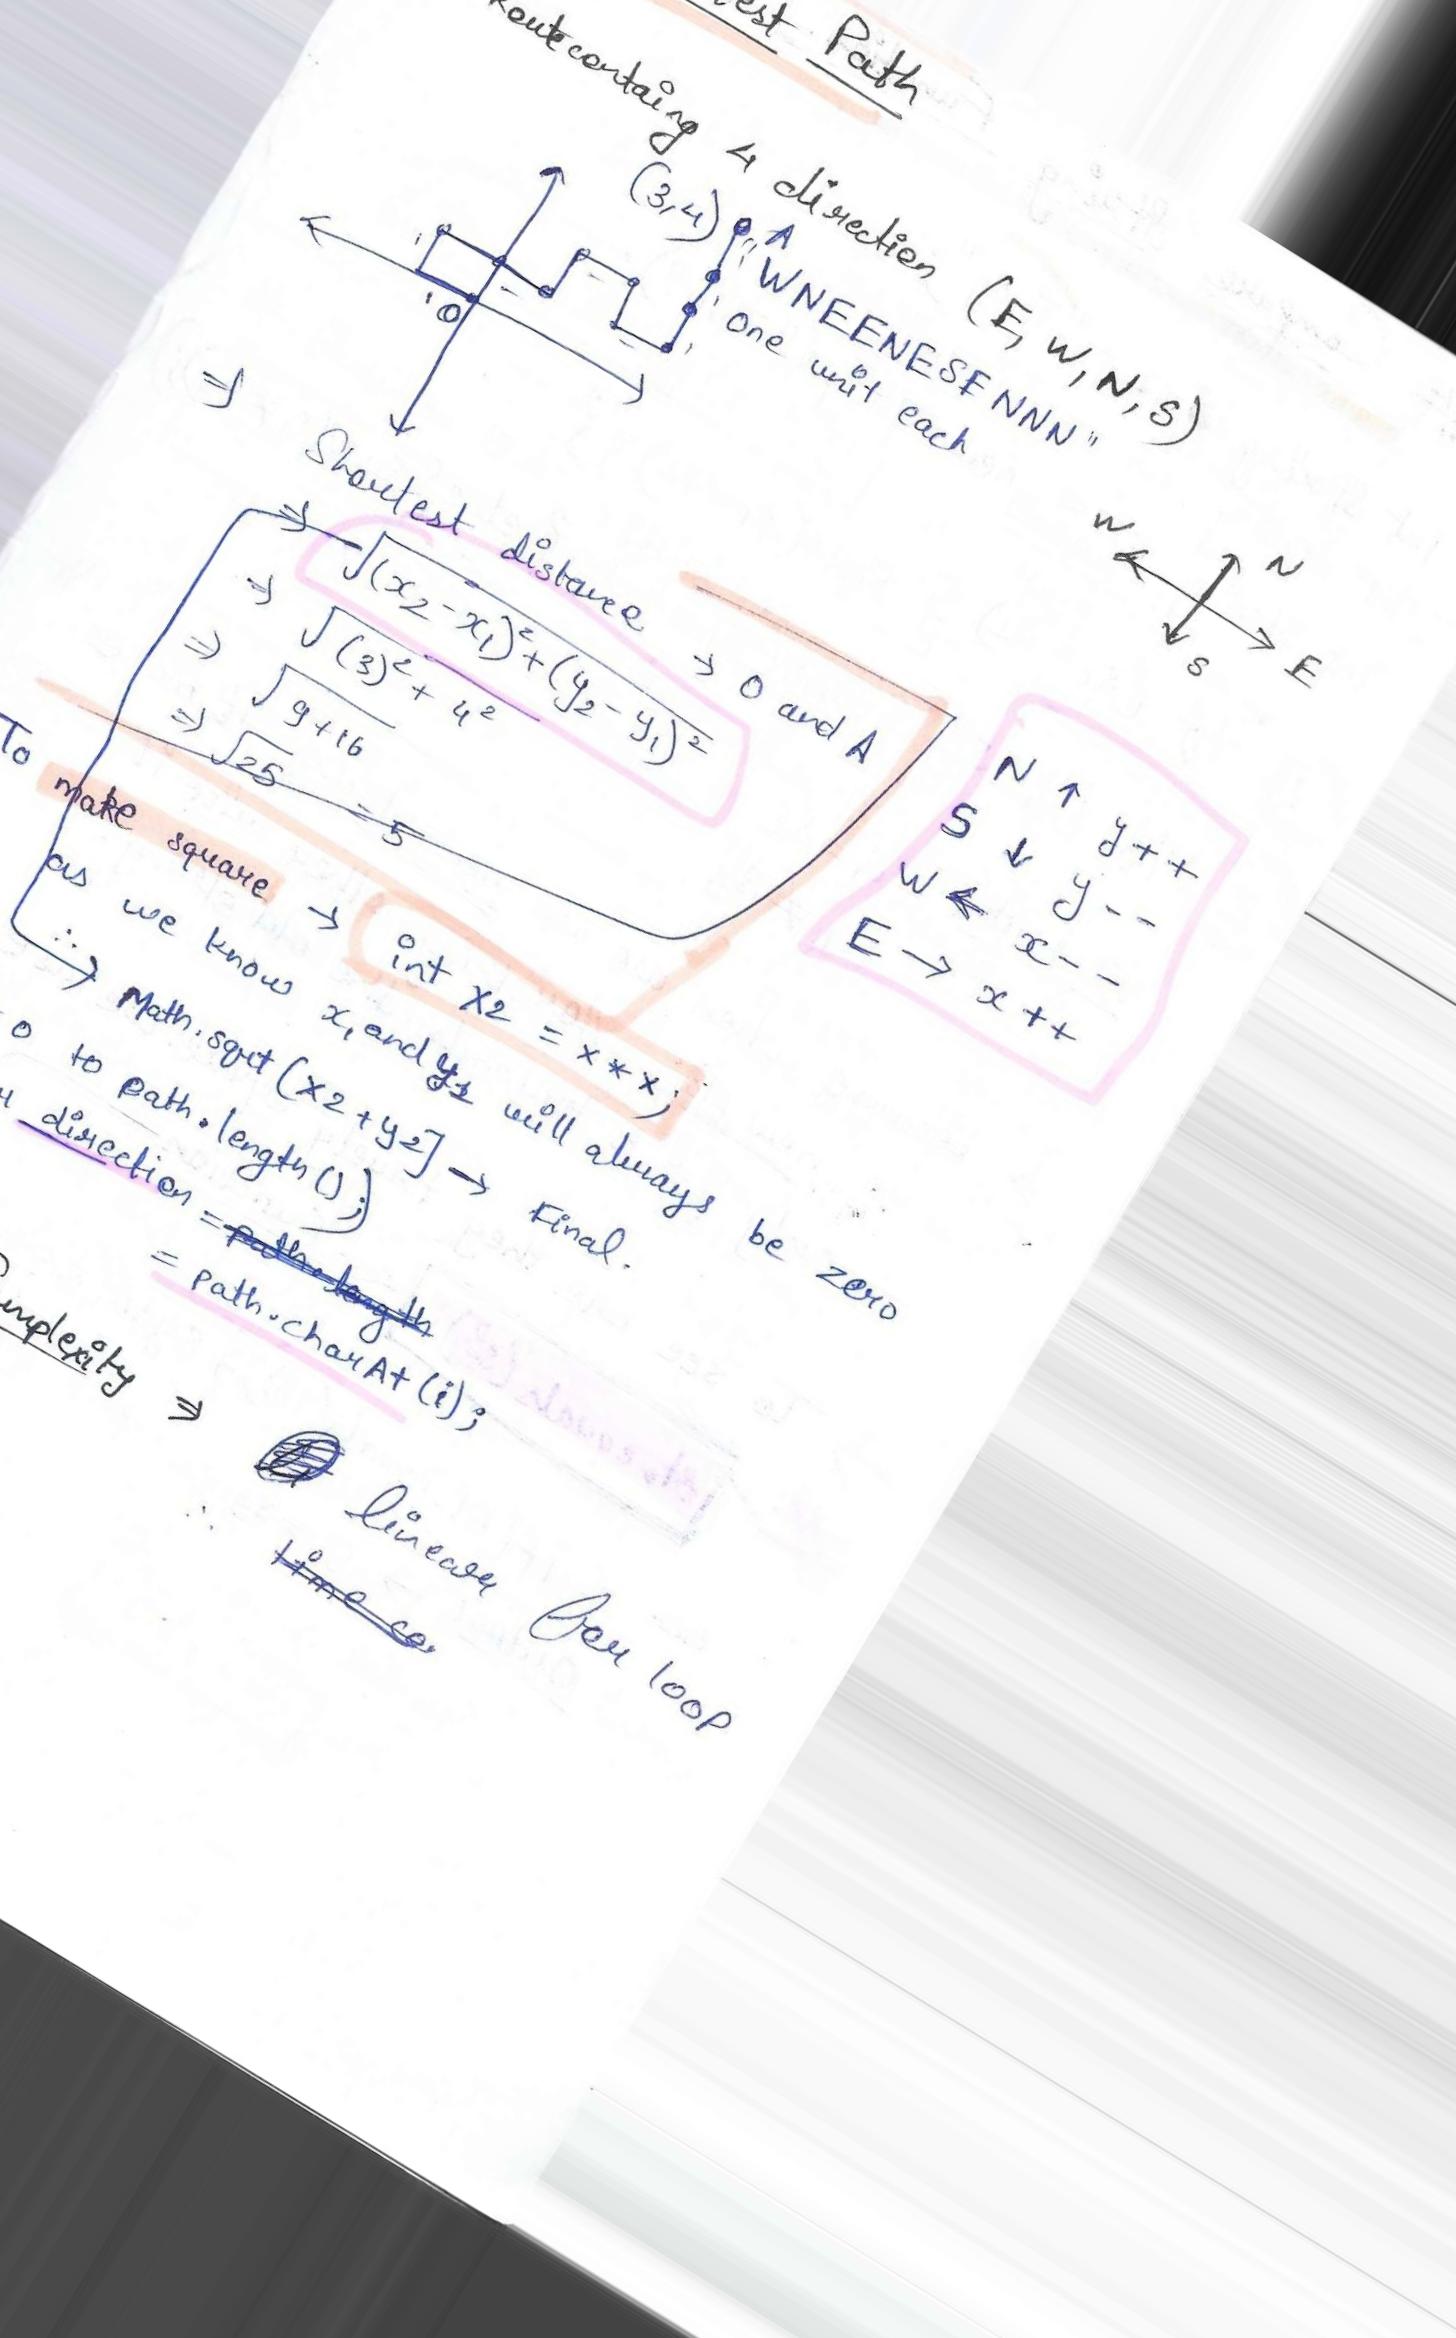 Path
Route containg 4 direction (E, W, N, S)
(3,4) A
"WNEENESENNN"
one unit each
O
W N
S E
⇒ Shortest distance → O and A
⇒ √(x₂-x₁)²+(y₂-y₁)²
⇒ √(3)²+4²
⇒ √9+16
⇒ √25 = 5
N ↑ y++
S ↓ y--
W ← x--
E → x++
To make square → int X2 = x*x;
as we know x₁ and y₁ will always be zero
∴ → Math.sqrt(X2+y2] → Final.
0 to path.length();
direction = path.length
= path.charAt(i);
⇒ linear for loop
∴ time co